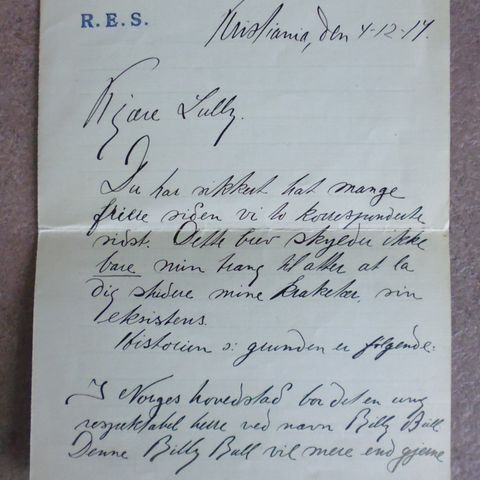 R.E.S.
Kristiania, den 4-12-17.
Kjære Lully.
Du har sikkert hat mange
friere siden vi to korresponderte
sidst. Dette brev skyldes ikke
bare min trang til atter at la
dig studere mine kraketær, sin
eksistens.
Historien o: grunden er følgende:
I Norges hovedstad bor det en ung
respektabel herre ved navn Billy Ball
Denne Billy Ball vil mere end gjerne